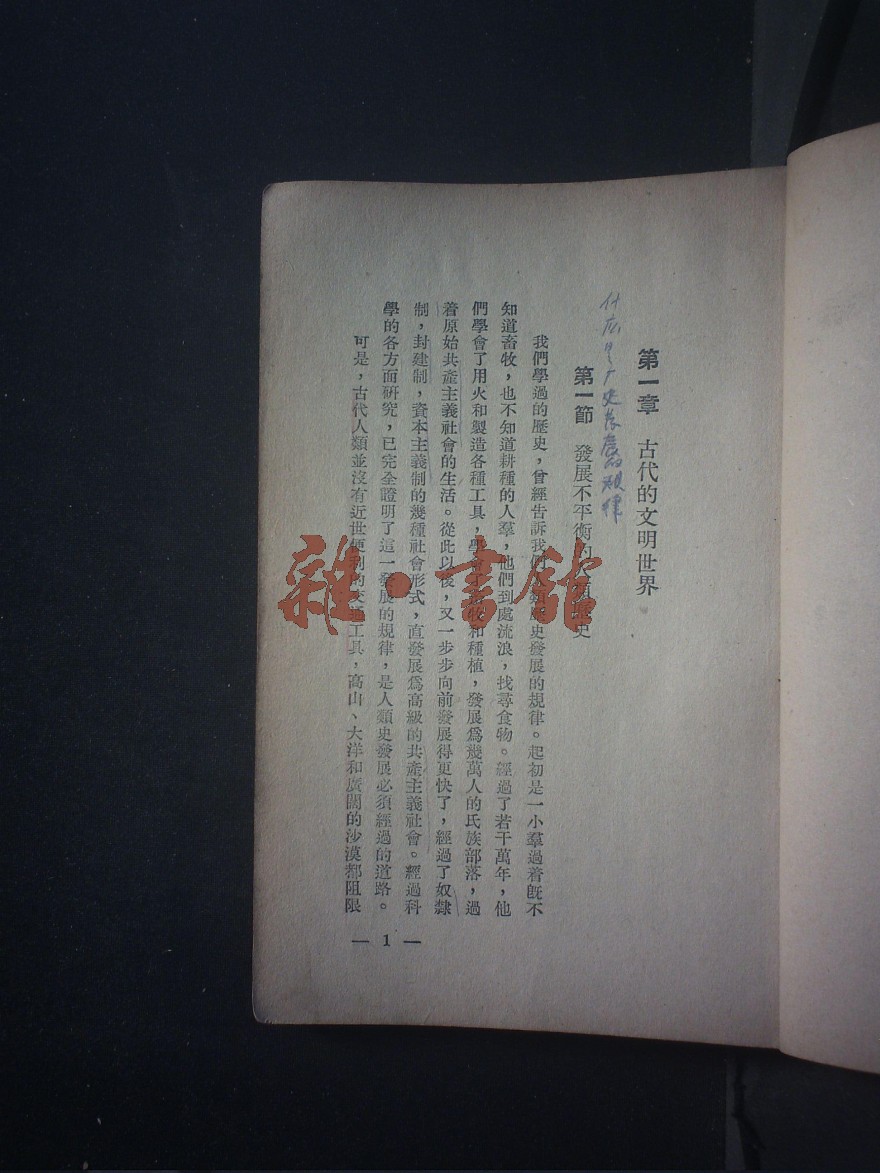 第一章 古代的文明世界
什么是厂史发展的规律
第一節 發展不平衡的人類歷史
我們學過的歷史，曾經告訴我們人類歷史發展的規律。起初是一小羣過着旣不
知道畜牧，也不知道耕種的人羣，他們到處流浪，找尋食物。經過了若干萬年，他
們學會了用火和製造各種工具，學會畜牧和種植，發展爲幾萬人的氏族部落，過
着原始共產主義社會的生活。從此以後，又一步步向前發展得更快了，經過了奴隸
制，封建制，資本主義制的幾種社會形式，直發展爲高級的共產主義社會。經過科
學的各方面研究，已完全證明了這一發展的規律，是人類史發展必須經過的道路。
可是，古代人類並沒有近世便利的交通工具，高山、大洋和廣闊的沙漠都阻限
— 1 —
雜·書館